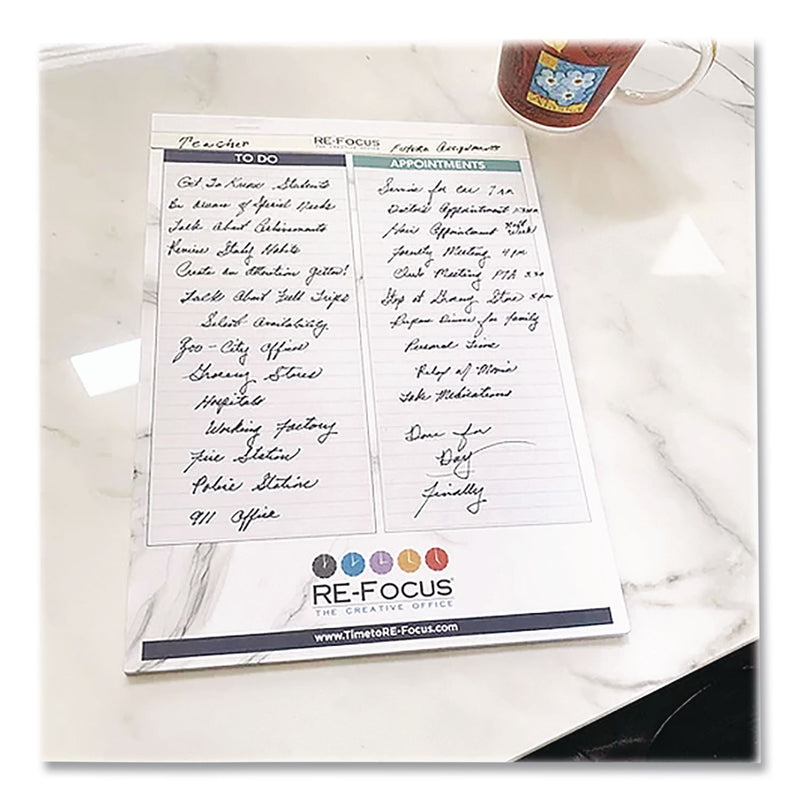 Teacher
RE-FOCUS
THE CREATIVE OFFICE
Future Assignments
TO DO
Get To Know Students
Be Aware of Special Needs
Talk About Achievements
Review Study Habits
Create an attention getter!
Talk About Field Trips
Select Availability
Zoo - City Offices
Grocery Stores
Hospitals
Working Factory
Fire Station
Police Station
911 Office
APPOINTMENTS
Service for Car 7 am
Doctor's Appointment
Hair Appointment Next Week
Faculty Meeting 4 pm
Club Meeting PTA 530
Stop at Grocery Store 5 pm
Prepare Dinner for family
Personal Time
Relax w/ Movie
Take Medications
Done for
Day
Finally
RE-FOCUS
THE CREATIVE OFFICE
www.TimetoRE-Focus.com
Alaska